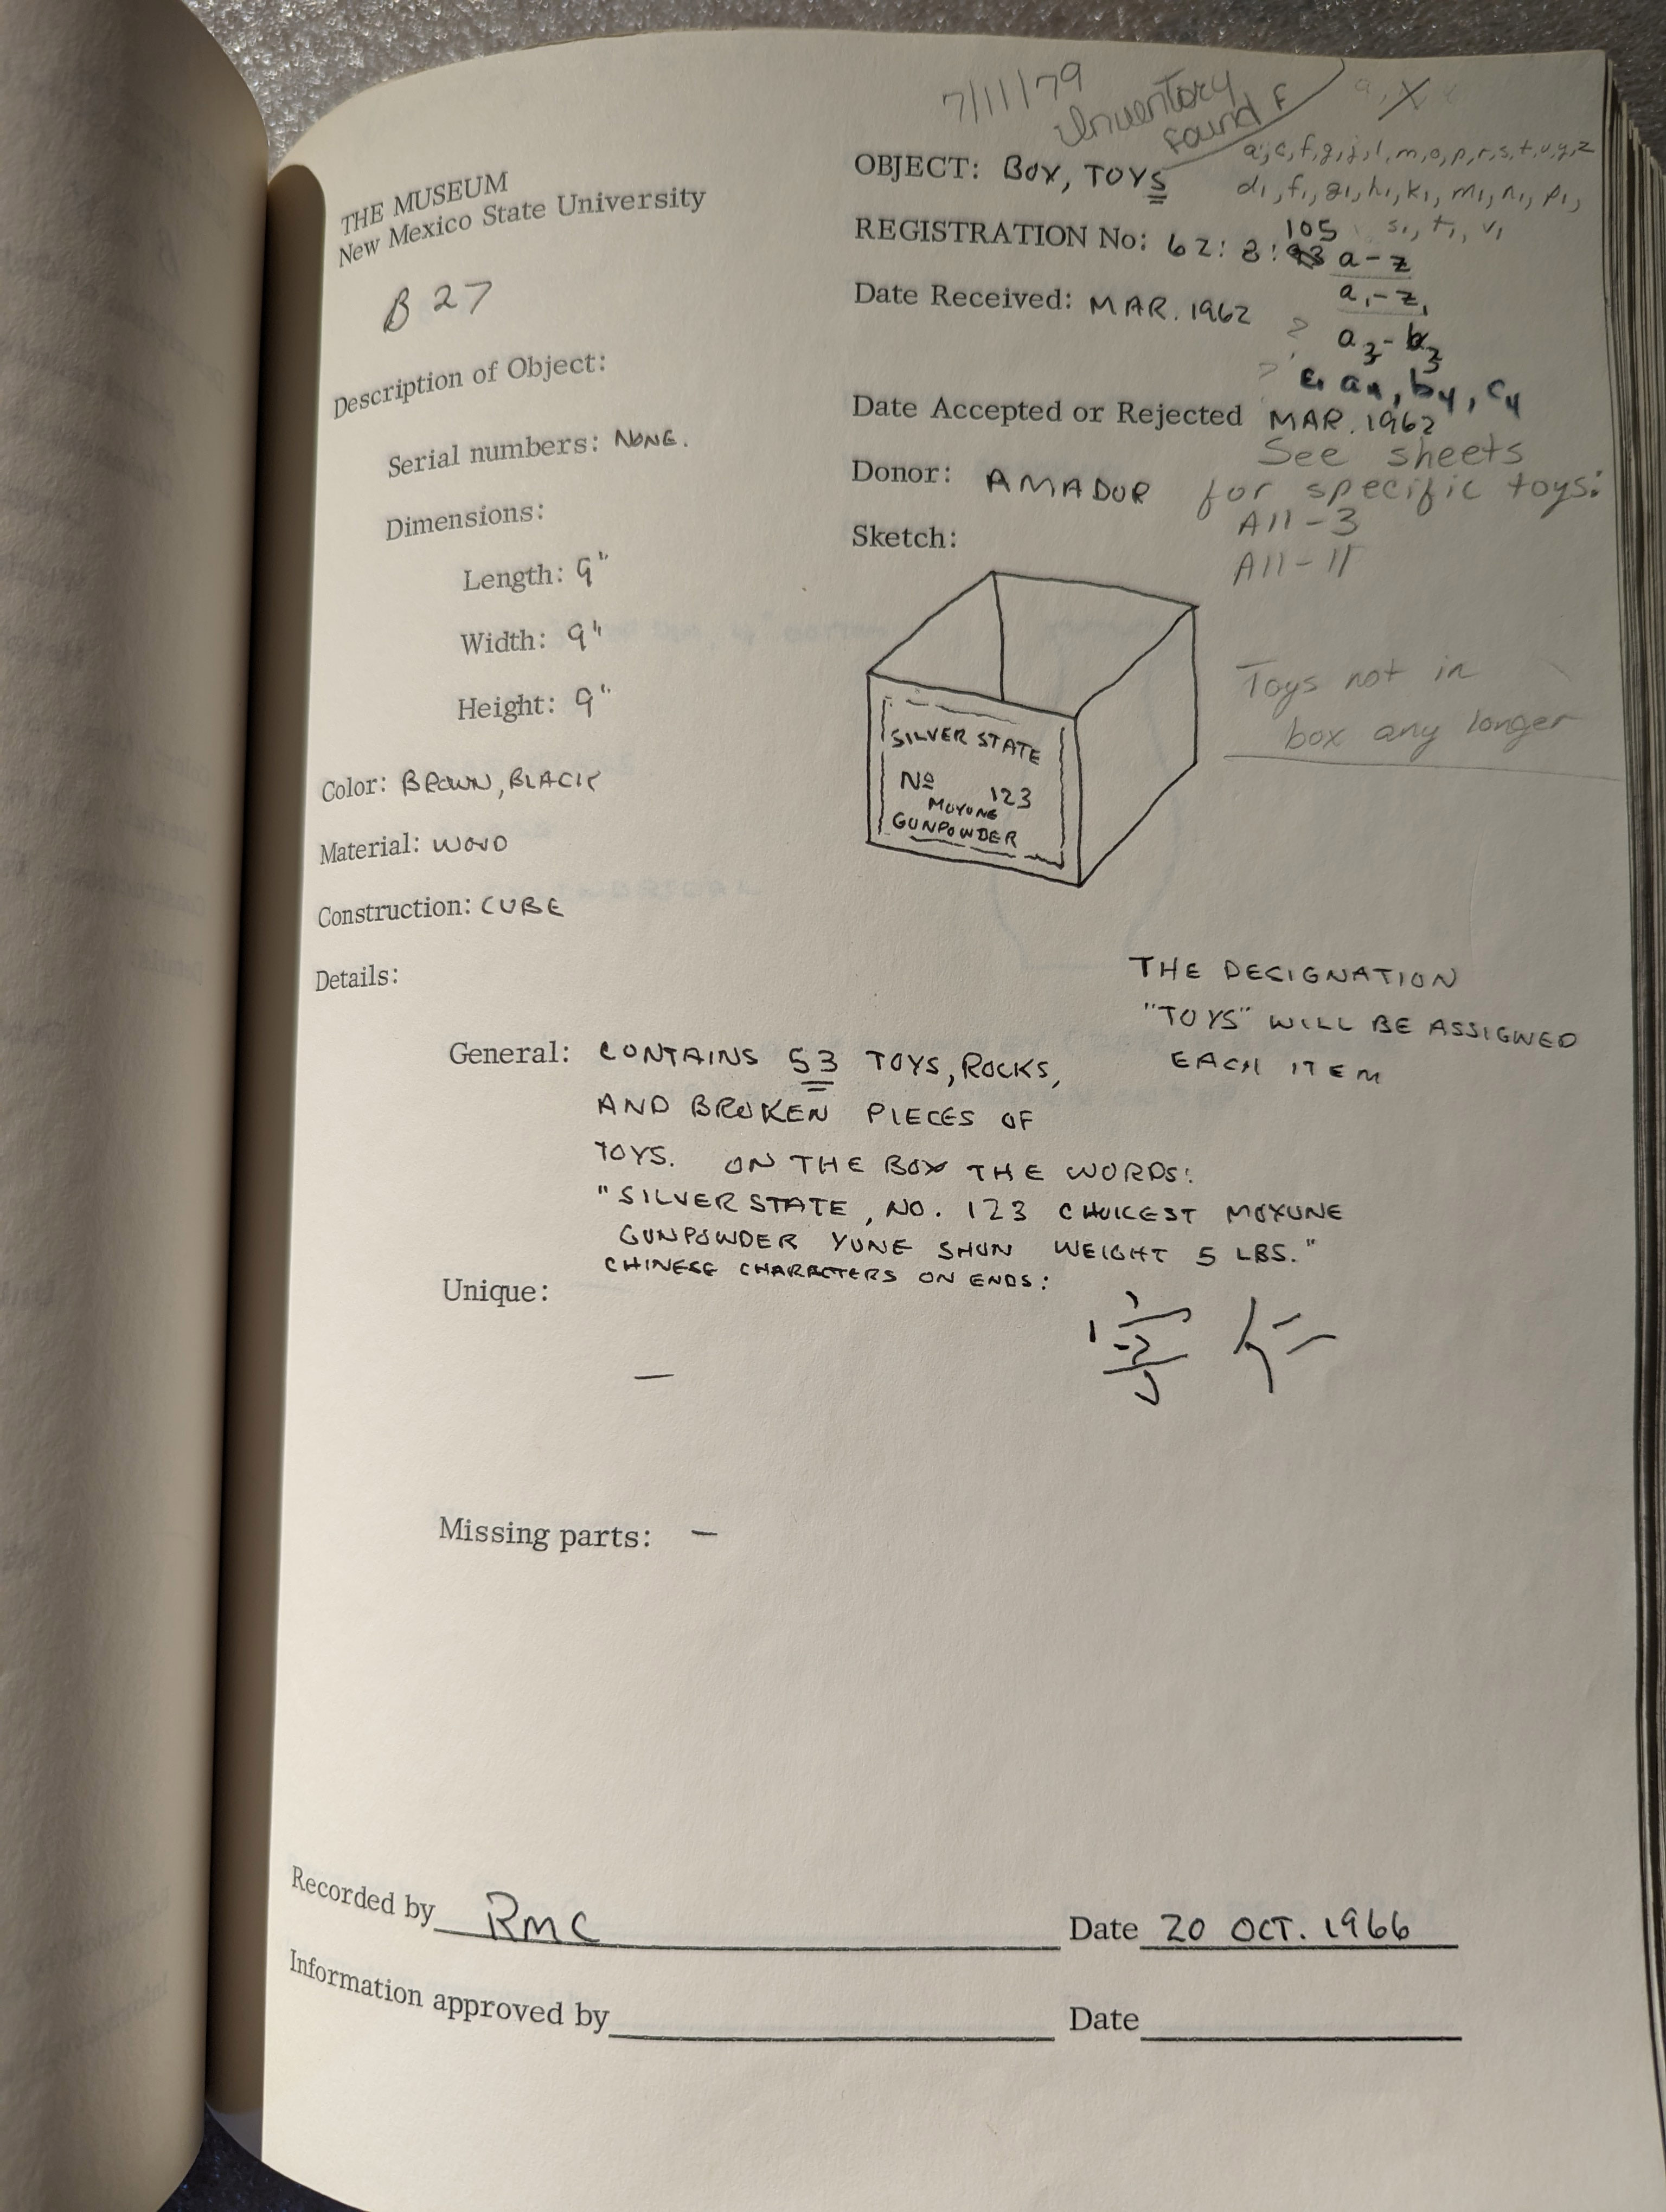 7/11/79
Inventory
found F
a, c, f, g, j, l, m, o, p, r, s, t, u, y, z
d₁, f₁, g₁, h₁, k₁, m₁, n₁, p₁,
s₁, t₁, v₁
THE MUSEUM
New Mexico State University
B 27
OBJECT: BOX, TOYS
REGISTRATION No: 62:8: 105 a-z
a₁-z₁
Date Received: MAR. 1962
? a₃-b₃
? a₄, b₄, c₄
Date Accepted or Rejected MAR. 1962
See sheets
Donor: AMADOR for specific toys:
A11-3
A11-11
Sketch:
SILVER STATE
Nº 123
MOYUNE
GUNPOWDER
Toys not in
box any longer
Description of Object:
Serial numbers: NONE.
Dimensions:
Length: 9"
Width: 9"
Height: 9"
Color: BROWN, BLACK
Material: WOOD
Construction: CUBE
Details:
THE DESIGNATION
"TOYS" WILL BE ASSIGNED
EACH ITEM
General: CONTAINS 53 TOYS, ROCKS,
AND BROKEN PIECES OF
TOYS. ON THE BOX THE WORDS:
"SILVER STATE, NO. 123 CHOICEST MOYUNE
GUNPOWDER YUNE SHUN WEIGHT 5 LBS."
CHINESE CHARACTERS ON ENDS:
Unique:
—
Missing parts: —
Recorded by RMC Date 20 OCT. 1966
Information approved by Date